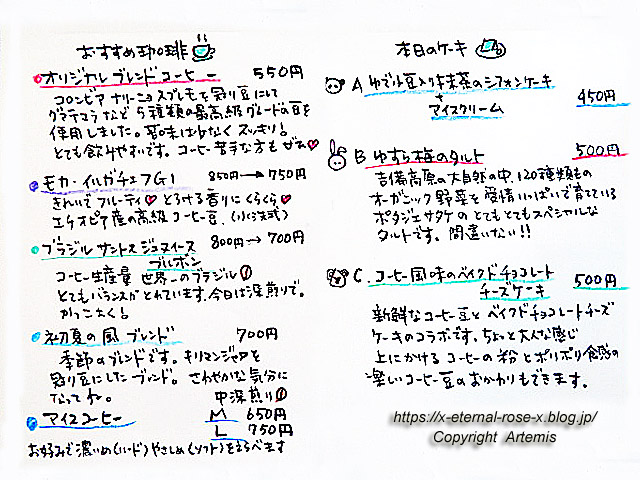 おすすめ珈琲
オリジナル ブレンド コーヒー 550円
コロンビア ナリーニョ スプレモを 冠り豆にして
グァテマラ など 5種類の最高級グレードの豆を
使用しました。苦味は少なく スッキリ!
とても飲みやすいです。コーヒー苦手な方も ぜひ
モカ・イルガチェフG1 850円→750円
きれいで フルーティ とろける香りに くらくら
エチオピア産の高級コーヒー豆.(水洗式)
ブラジル サントス ジュヌイーズ 800円→700円
ブルボン
コーヒー生産量 世界一の ブラジル
とてもバランスがとれています。今日は深煎りで。
かっこよく!
初夏の風 ブレンド 700円
季節のブレンドです。キリマンジャロを
冠り豆にしたブレンド。さわやかな気分に
なってね。 中深煎り
アイスコーヒー M 650円
L 750円
お好みで 濃いめ(ハード)やさしめ(ソフト)をえらべます
本日のケーキ
A ゆで小豆入り抹茶のシフォンケーキ
+
アイスクリーム 450円
B ゆすら梅のタルト 500円
吉備高原の大自然の中、120種類もの
オーガニック野菜を 愛情いっぱいで育てている
ポタジェサタケの とてもとてもスペシャルな
タルトです。間違いない!!
C. コーヒー風味のベイクドチョコレート
チーズケーキ 500円
新鮮なコーヒー豆と ベイクドチョコレートチーズ
ケーキのコラボです。ちょっと大人な感じ
上にかける コーヒーの粉と ポリポリ食感の
楽しいコーヒー豆の おかわりもできます。
https://x-eternal-rose-x.blog.jp/
Copyright Artemis